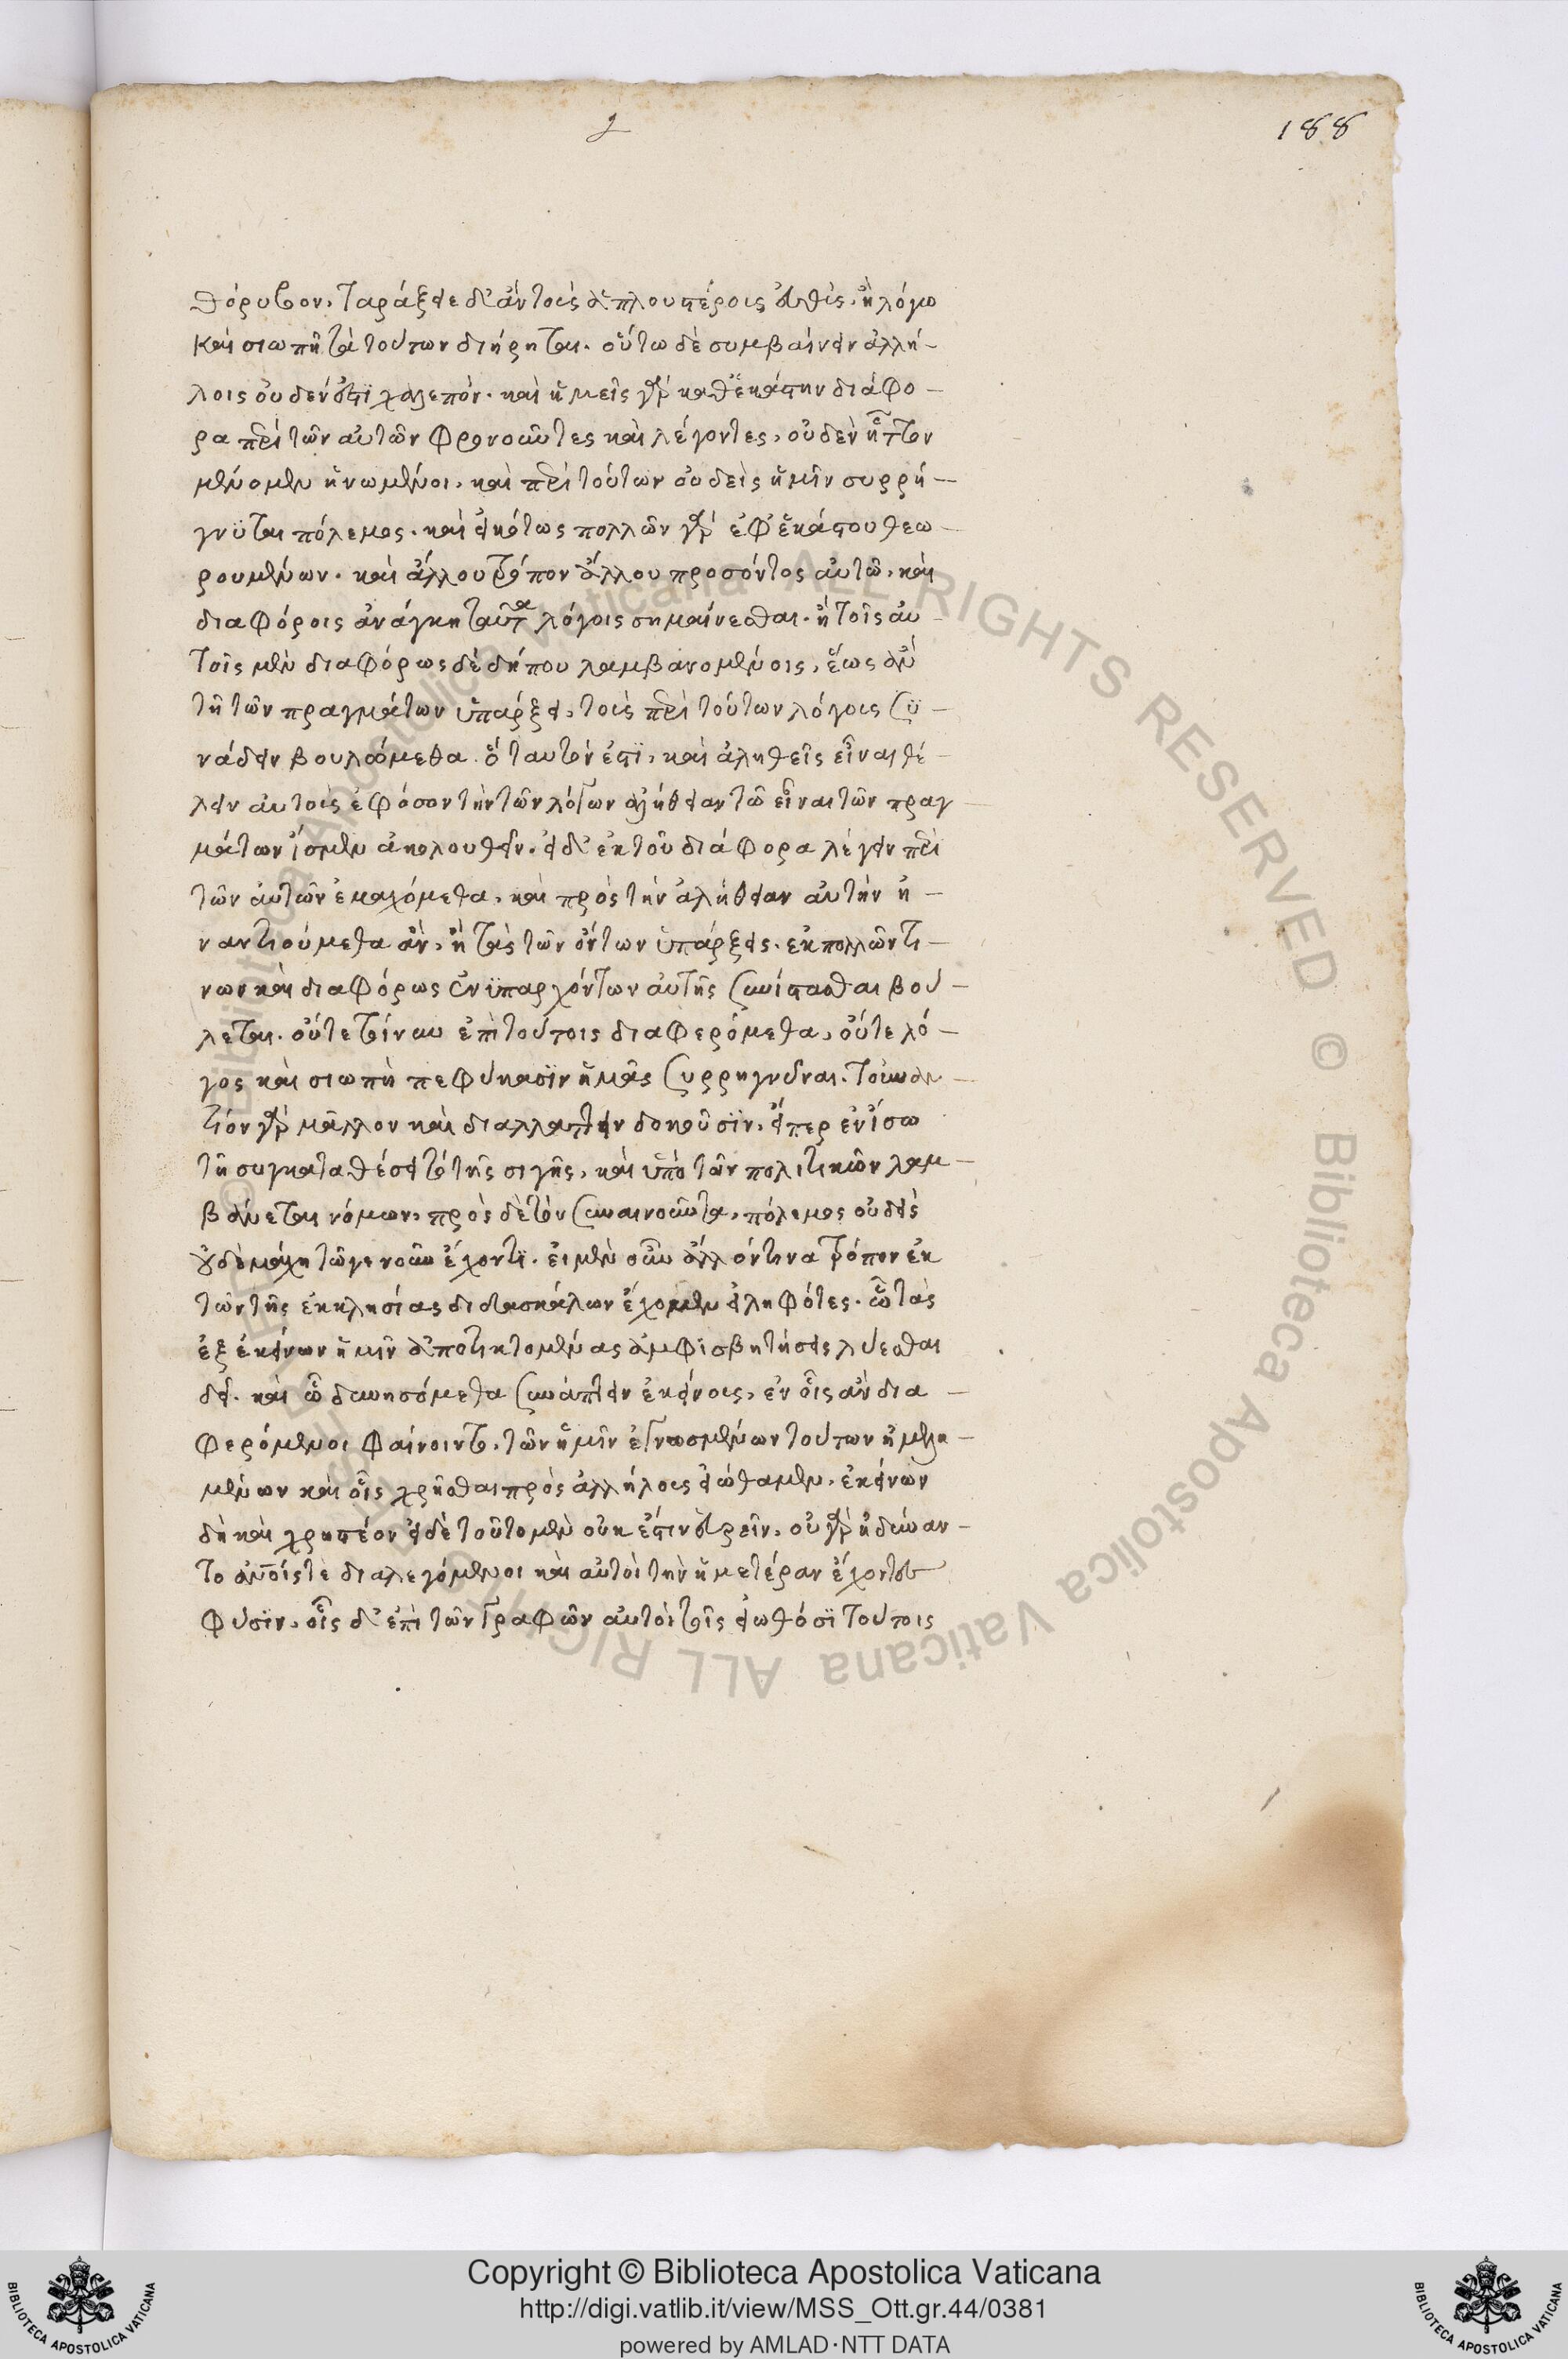 188
θόρυβον. ταράξειε δ' ἂν τοὺς ἁπλουστέρους εὐθὺς, ἢ λόγω
καὶ σιωπῆ τὰ τούτων διήρηται. οὕτω δὲ συμβαίνειν ἀλλή-
λοις οὐδέν ἐστι χαλεπόν. καὶ ἡμεῖς γὰρ καθ' ἑκάστην διάφο-
ρα περὶ τῶν αὐτῶν φρονοῦντες καὶ λέγοντες, οὐδὲν ἧττον
μένομεν ἡνωμένοι. καὶ περὶ τούτων οὐδεὶς ἡμῖν συρρή-
γνϋται πόλεμος. καὶ εἰκότως πολλῶν γὰρ ἐφ' ἑκάστου θεω-
ρουμένων. καὶ ἄλλου τρόπον ἄλλου προσόντος αὐτῶ, καὶ
διαφόροις ἀνάγκη ταῦτα λόγοις σημαίνεσθαι. ἢ τοῖς αὐ-
τοῖς μὲν διαφόρως δὲ δήπου λαμβανομένοις, ἕως ἂν
τῆ τῶν πραγμάτων ὑπάρξει, τοὺς περὶ τούτων λόγους σϋ-
νάδειν βουλώμεθα. ὃ ταυτόν ἐστϊ, καὶ ἀληθεῖς εἶναι θέ-
λειν αὐτοὺς ἐφόσον τὴν τῶν λόγων ἀλήθειαν τῶ εἶναι τῶν πραγ-
μάτων ἴσμεν ἀκολουθεῖν. εἰ δ' ἐκ τοῦ διάφορα λέγειν περὶ
τῶν αὐτῶν ἐμαχόμεθα, καὶ πρὸς τὴν ἀλήθειαν αὐτὴν ἠ-
ναντιούμεθα ἂν, ἢ τὰς τῶν ὄντων ὑπάρξεις. ἐκ πολλῶν τι-
νων καὶ διαφόρως ἐνϋπαρχόντων αὐτῆς συνίστασθαι βού-
λεται. οὔτε τοίνυν ἐπὶ τούτοις διαφερόμεθα, οὔτε λό-
γος καὶ σιωπὴ πεφύκασϊν ἡμᾶς συρρηγνύναι. τοὐναν-
τίον γὰρ μᾶλλον καὶ διαλλαττειν δοκοῦσϊν. εἴπερ ἐν ἴσω
τῆ συγκαταθέσει τὸ τῆς σιγῆς, καὶ ὑπὸ τῶν πολιτικῶν λαμ-
βάνεται νόμων, πρὸς δὲ τὸν συναινοῦντα, πόλεμος οὐδεὶς
οὐδὲ μάχη τῶ γε νοῦν ἔχοντϊ. εἰ μὲν οὖν ἄλλ ὅντινα τρόπον ἐκ
τῶν τῆς ἐκκλησίας διδασκάλων ἔχομεν εἰληφότες. ὧ τὰς
ἐξ ἐκείνων ἡμῖν ἀποτικτομένας ἀμφϊσβητήσεις λύεσθαι
δεῖ. καὶ ὧ δυνησόμεθα συνάπτειν ἐκείνους, ἐν οἷς ἂν δια-
φερόμενοι φαίνοιντο. τῶν ἡμῖν ἐγνωσμένων τούτων ἠμελη-
μένων καὶ οἷς χρῆσθαι πρὸς ἀλλήλους εἰώθαμεν. ἐκείνων
δὴ καὶ χρηστέον εἰ δὲ τοῦτο μὲν οὐκ ἔστιν εὑρεῖν. οὐ γὰρ ἠδύναν-
το διαλεγόμενοι καὶ αὐτοὶ τὴν ἡμετέραν ἔχοντες
φύσϊν. οἷς δ' ἐπὶ τῶν γραφῶν αὐτοὶ τοῖς εἰωθόσϊ τούτοις
Copyright © Biblioteca Apostolica Vaticana
http://digi.vatlib.it/view/MSS_Ott.gr.44/0381
powered by AMLAD·NTT DATA